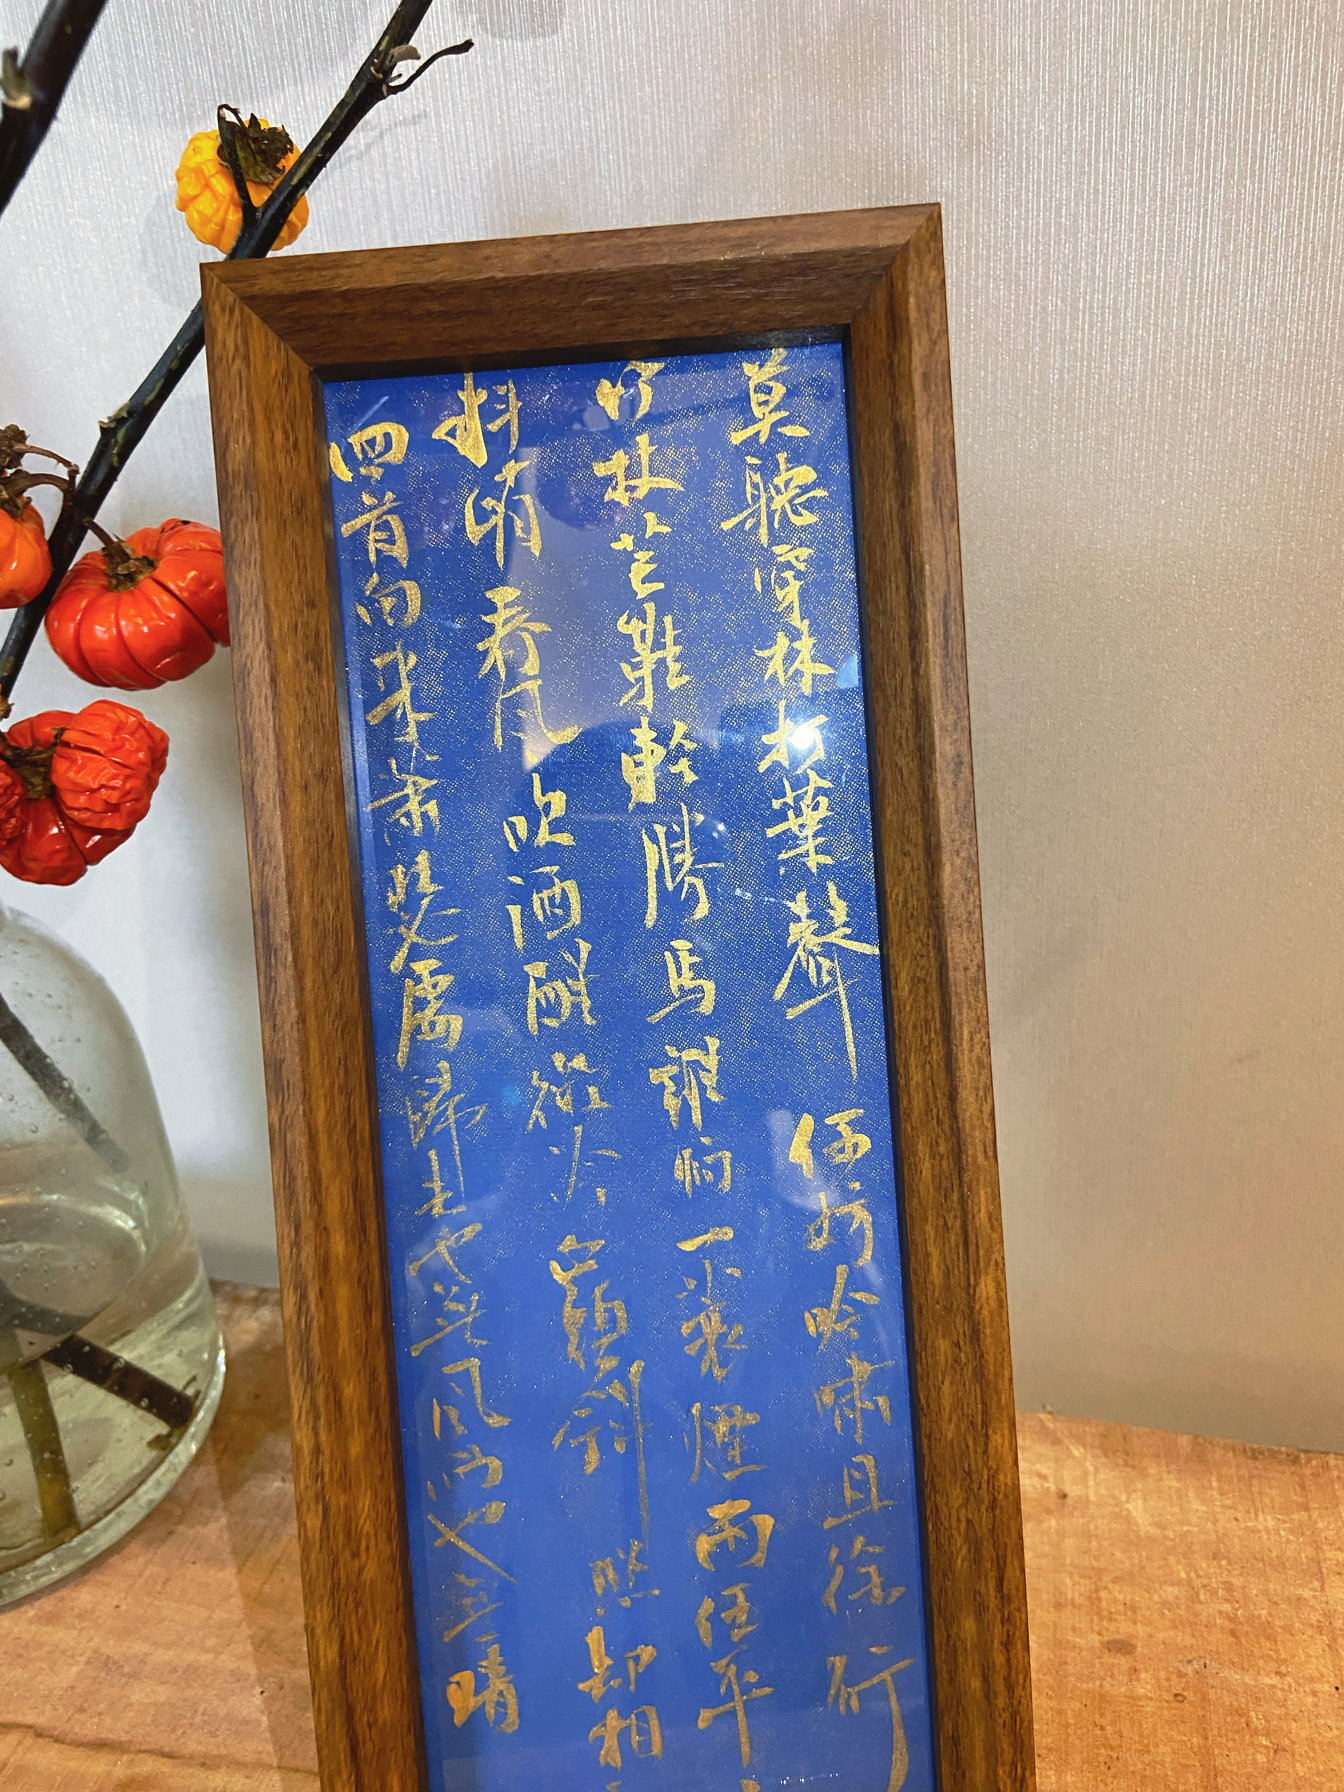 莫聽穿林打葉聲何妨吟嘯且徐行
竹杖芒鞋輕勝馬誰怕一蓑煙雨任平
料峭春風吹酒醒微冷山頭斜照却相
回首向來蕭瑟處歸去也無風雨也無晴